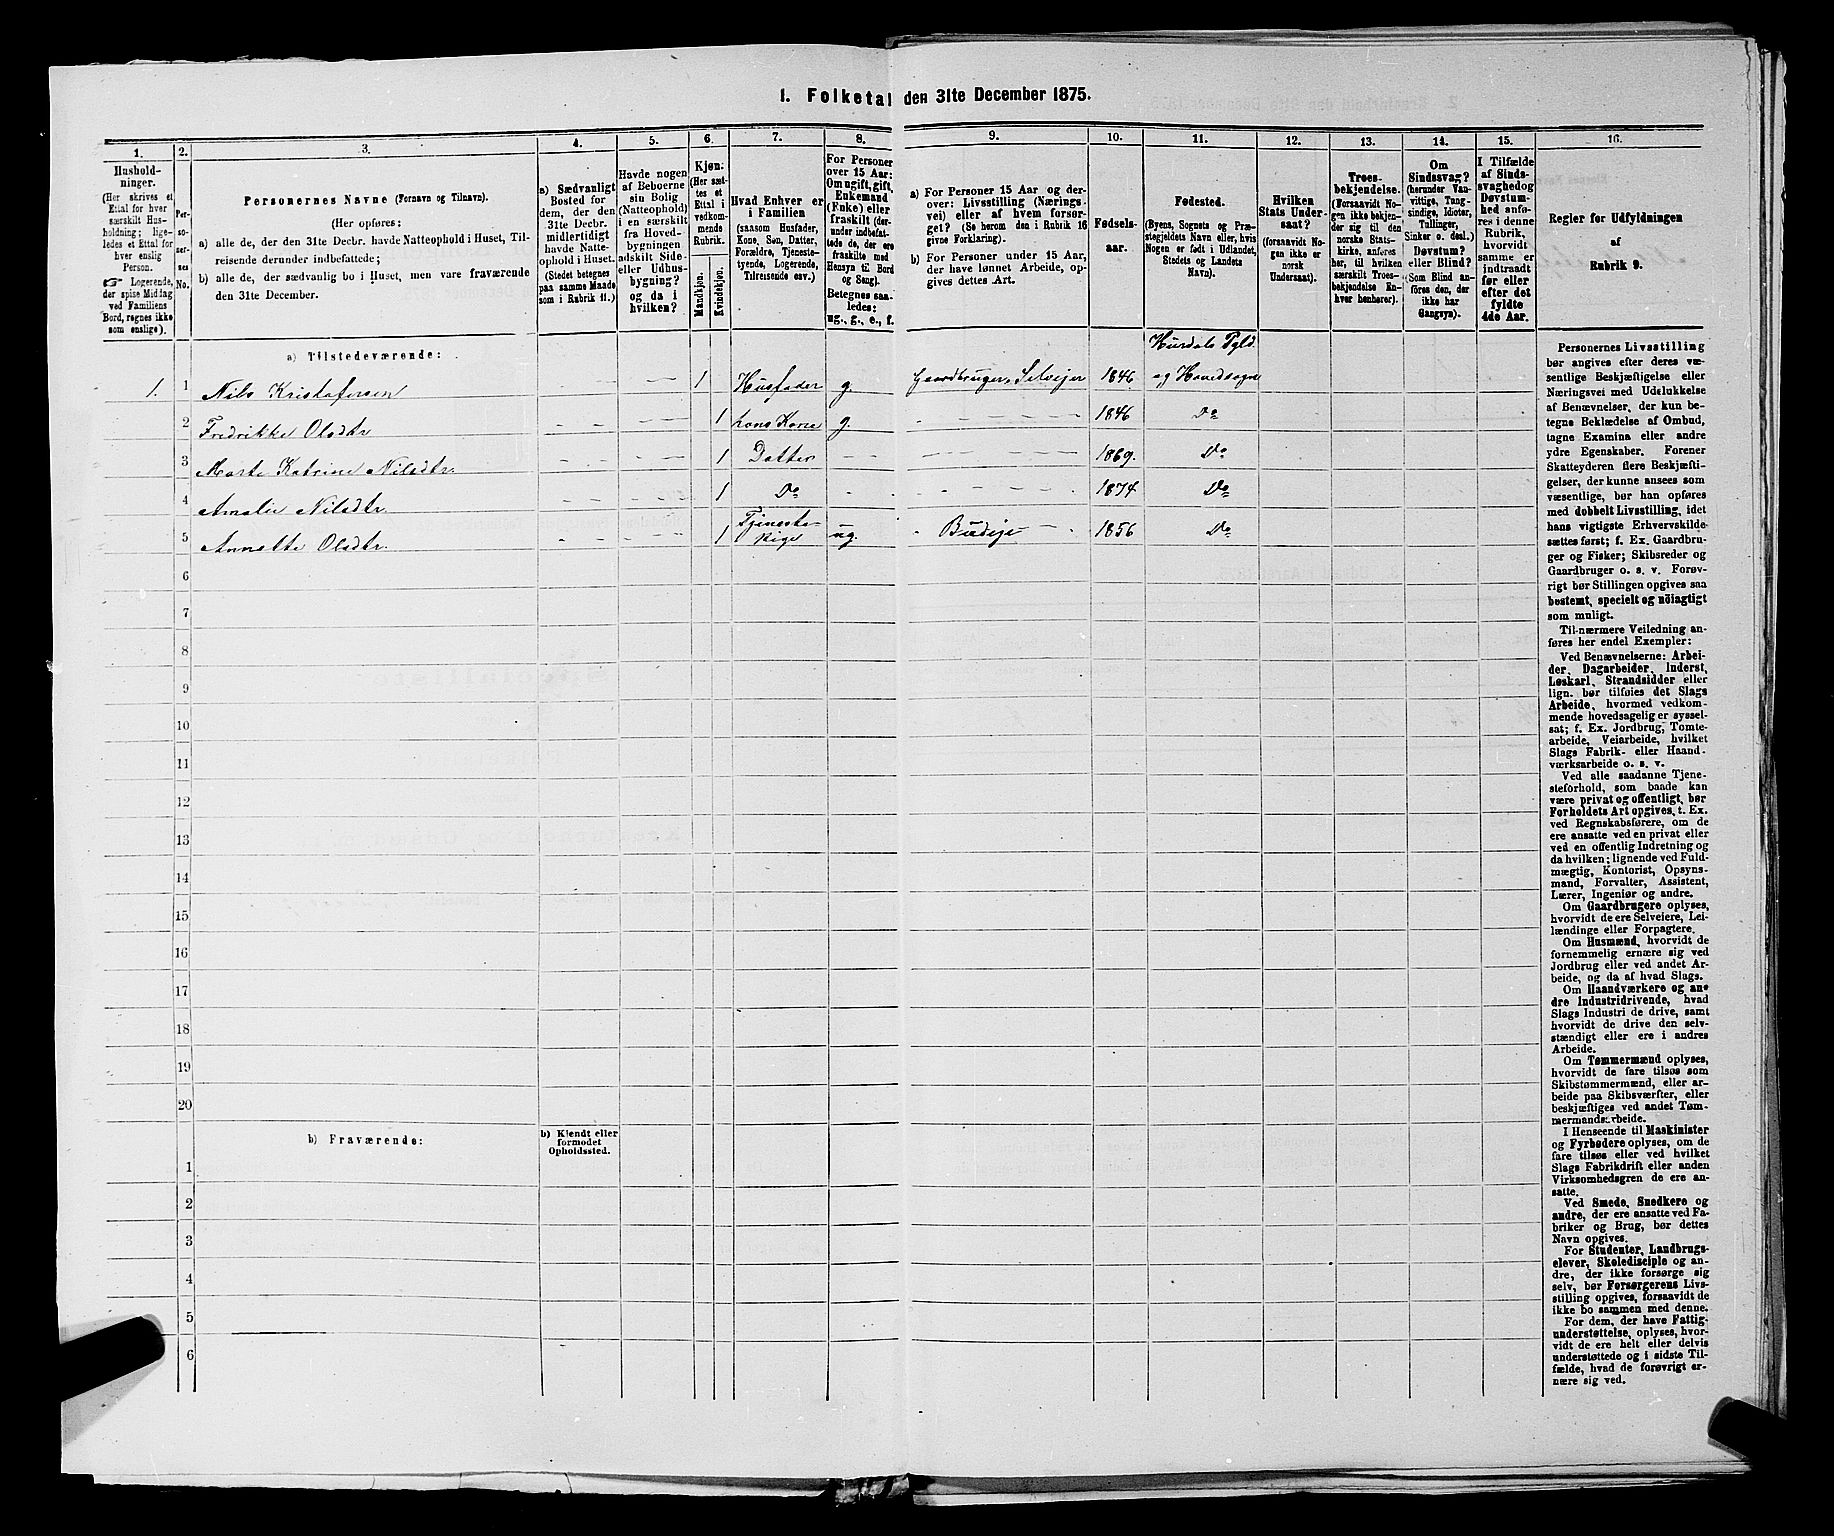 1. Folketal den 31te December 1875.
1.
Hushold-
ninger.
(Her skrives et
Ettal for hver
særskilt Hus-
holdning; lige-
ledes et Ettal for
hver enslig
Person.
☞ Logerende,
der spise Middag
ved Familiens
Bord, regnes ikke
som enslige).
2.
Per-
so-
ner-
nes
No.
3.
Personernes Navne (Fornavn og Tilnavn).
(Her opføres:
a) alle de, der den 31te Decbr. havde Natteophold i Huset, Til-
reisende derunder indbefattede;
b) alle de, der sædvanlig bo i Huset, men vare fraværende
den 31te December.
4.
a) Sædvanligt
Bosted for
dem, der den
31te Decbr.
midlertidigt
havde Natte-
ophold i Huset.
(Stedet betegnes
paa samme Maade
som i Rubrik 11.)
5.
Havde nogen
af Beboerne
sin Bolig
(Natteophold)
i en særskilt
fra Hoved-
bygningen
adskilt Side-
eller Udhus-
bygning?
og da i
hvilken?
6.
Kjøn.
(Her sæt-
tes et
Ettal i
vedkom-
mende
Rubrik.
Mandkjøn.
Kvindekjøn.
7.
Hvad Enhver er
i Familien
(saasom Husfader,
Kone, Søn, Datter,
Forældre, Tjeneste-
tyende, Logerende,
Tilreisende osv.)
8.
For Personer
over 15 Aar:
Om ugift, gift,
Enkemand
(Enke) eller
fraskilt (der-
under indbefat-
tede de, der ere
fraskilte med
Hensyn til Bord
og Seng).
Betegnes saa-
ledes:
ug., g., e., f.
9.
a) For Personer 15 Aar og der-
over: Livsstilling (Nærings-
vei) eller af hvem forsør-
get? (Se herom den i Rubrik 16
givne Forklaring).
b) For Personer under 15 Aar,
der have lønnet Arbeide, op-
gives dettes Art.
10.
Fødsels-
aar.
11.
Fødested.
(Byens, Sognets og Præ-
stegjeldets Navn eller, hvis
Nogen er født i Udlandet,
Stedets og Landets
Navn).
12.
Hvilken
Stats Under-
saat?
(forsaavidt No-
gen ikke er
norsk
Undersaat).
13.
Troes-
bekjendelse.
(Forsaavidt No-
gen ikke bekjen-
der sig til den
norske Stats-
kirke, anføres
her, til hvilken
særskilt Troes-
bekjendelse En-
hver henhører).
14.
Om
Sindssvag?
(herunder Van-
vittige, Tung-
sindige, Idioter,
Tullinger,
Sinker o. desl.)
Døvstum?
eller Blind?
(Som Blind an-
føres den, der
ikke har
Gangsyn).
15.
I Tilfælde
af Sinds-
svaghed og
Døvstum-
hed anfø-
res i denne
Rubrik,
hvorvidt
samme er
indtraadt
før eller
efter det
fyldte
4de Aar.
16.
Regler for Udfyldningen
af
Rubrik 9.
a) Tilstedeværende:
Hurdals Pgld.
1. 1 Nils Kristofersen — — 1 Husfader g. Gaardbruger, Selveier 1846 og Hovedsogne
2 Fredrikke Olsdtr 1 hans Kone g. 1846 Do
3 Marte Katrine Nilsdtr. 1 Datter 1869. Do
4 Amalie Nilsdtr 1 Do 1874 Do
5 Annette Olsdtr. 1 Tjeneste-
pige ug. Budeje 1856 Do
6
7
8
9
10
11
12
13
14
15
16
17
18
19
20
b) Fraværende:
b) Kjendt eller
formodet
Opholdssted.
1
2
3
4
5
6
Personernes Livsstilling
bør angives efter deres væ-
sentlige Beskjæftigelse eller
Næringsvei med Udelukkelse
af Benævnelser, der kun be-
tegne Beklædelse af Ombud,
tagne Examina eller andre
ydre Egenskaber. Forener
Skatteyderen flere Beskjæfti-
gelser, der kunne ansees som
væsentlige, bør han opføres
med dobbelt Livsstilling, idet
hans vigtigste Erhvervskilde
sættes først; f. Ex. Gaardbru-
ger og Fisker; Skibsreder og
Gaardbruger o. s. v. Forøv-
rigt bør Stillingen opgives saa
bestemt, specielt og nöiagtigt
som muligt.
Til nærmere Veiledning an-
føres her endel Exempler:
Ved Benævnelserne: Arbei-
der, Dagarbeider, Inderst,
Løskarl, Strandsidder eller
lign. bør tilføies det Slags
Arbeide, hvormed vedkom-
mende hovedsagelig er syssel-
sat; f. Ex. Jordbrug, Tomte-
arbeide, Veiarbeide, hvilket
Slags Fabrik- eller Haand-
værksarbeide o. s. v.
Ved alle saadanne Tjene-
steforhold, som baade kan
være privat og offentligt, bør
Forholdets Art opgives, t. Ex.
ved Regnskabsførere, om de
ere ansatte ved en privat eller
ved en offentlig Indretning og
da hvilken; lignende ved Fuld-
mægtig, Kontorist, Opsyns-
mand, Forvalter, Assistent,
Lærer, Ingeniør og andre.
Om Gaardbrugere oplyses,
hvorvidt de ere Selveiere, Lei-
lændinge eller Forpagtere.
Om Husmænd, hvorvidt de
fornemmelig ernære sig ved
Jordbrug eller ved andet Ar-
beide, og da af hvad Slags.
Om Haandværkere og an-
dre Industridrivende, hvad
Slags Industri de drive, samt
hvorvidt de drive den selv-
stændigt eller ere i andres
Arbeide.
Om Tømmermænd oplyses,
hvorvidt de fare tilsøs som
Skibstømmermænd, eller ar-
beide paa Skibsværfter, eller
beskjæftiges ved andet Tøm-
mermandsarbeide.
I Henseende til Maskinister
og Fyrbødere oplyses, om de
fare tilsøs eller ved hvilket
Slags Fabrikdrift eller anden
Virksomhedsgren de ere an-
satte.
Ved Smede, Snedkere og
andre, der ere ansatte ved Fa-
briker og Brug, bør dettes
Navn opgives.
For Studenter, Landbrugs-
elever, Skoledisciple og an-
dre, der ikke forsørge sig
selv, bør Forsørgerens Livs-
stilling opgives, forsaavidt de
ikke bo sammen med denne.
For dem, der have Fattig-
understøttelse, oplyses, hvor-
vidt de ere helt eller delvis
understøttede og i sidste Til-
fælde, hvad de forøvrigt er-
nære sig ved.